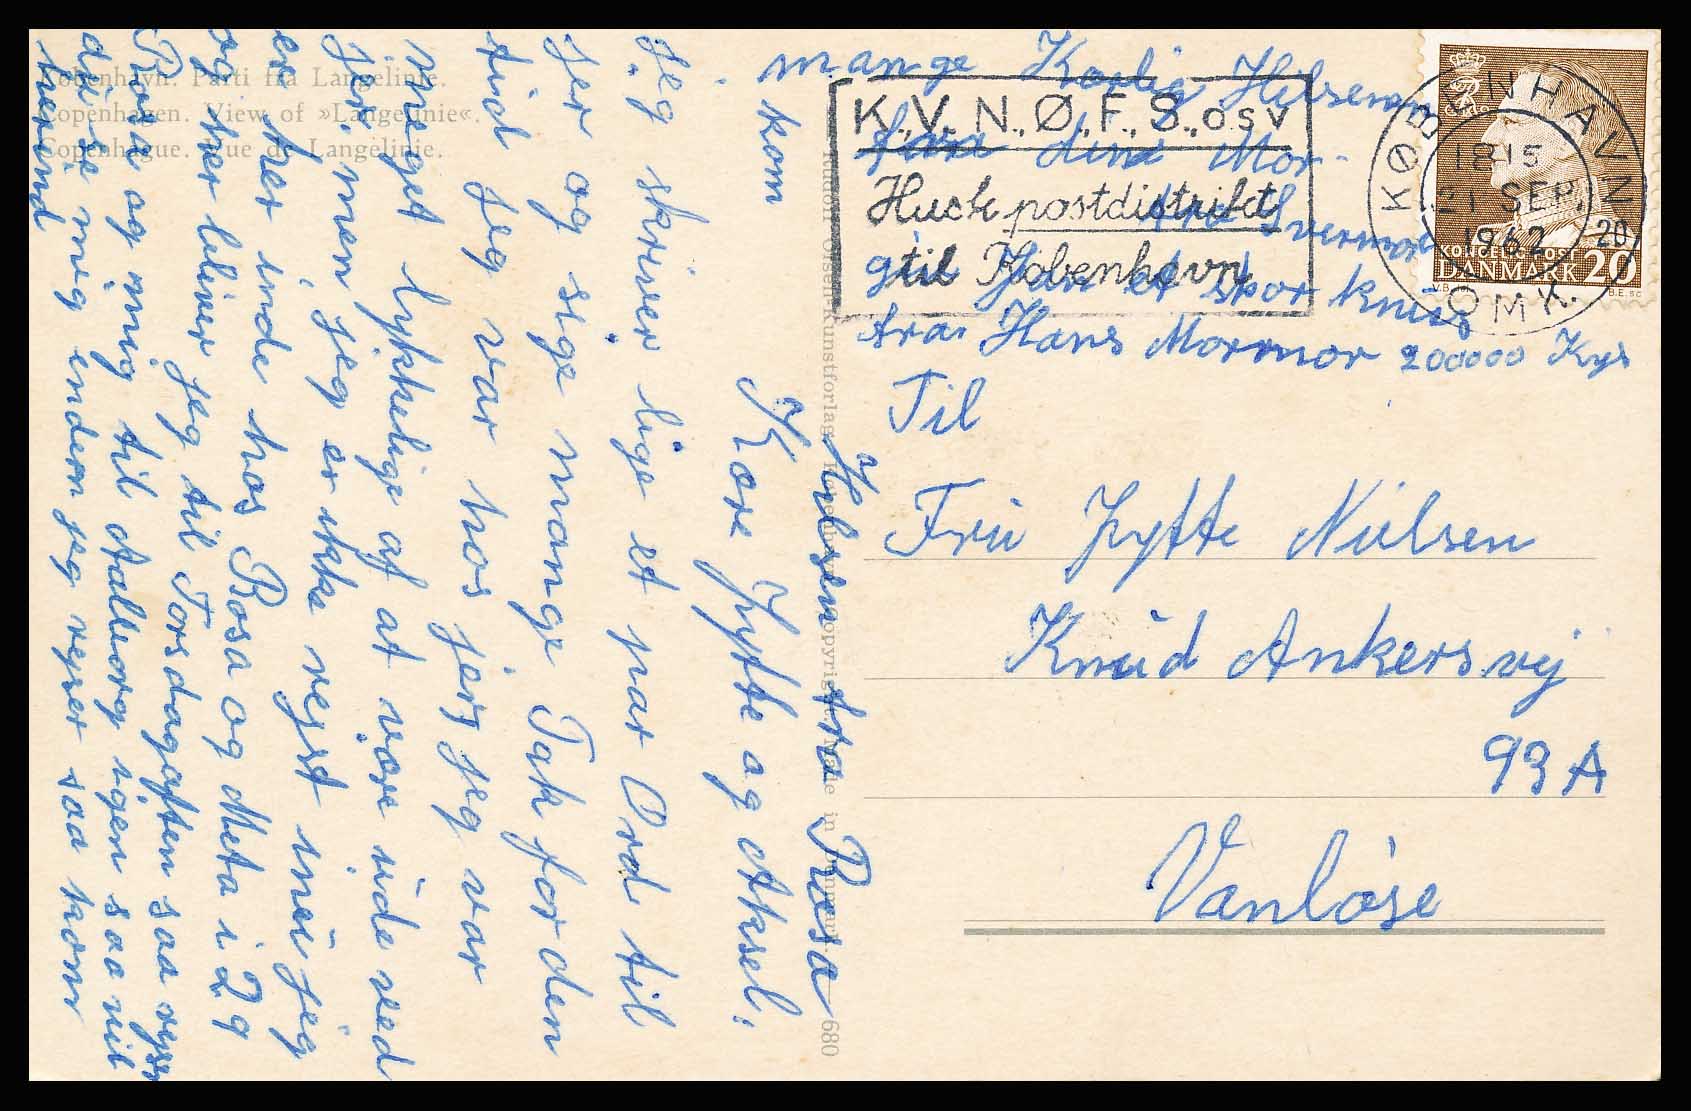 København. Parti fra Langelinie.
Copenhagen. View of »Langelinie«.
Copenhague. Vue de Langelinie.
Kære Jytte og Aksel.
Jeg skriver lige et par Ord til
jer og sige mange Tak for den
tid jeg var hos jer jeg var
meget lykkelige af at være ude ved
jer men jeg er ikke rejst inu jeg
er her inde hos Rosa og Meta i 2 g
og her bliver jeg til Torsdagaften saa rejser
Rosa og mig til Aalborg igen saa vil
de se mig inden jeg rejser saa kom
herind
kom
Hilsen fra Rosa
Rudolf Olsens Kunstforlag, København. Copyright. Made in Denmark. 680
mange Kærlig Hilsener
fare dine Mor-
din Svermor
giv Jan et stor knus
fra Hans Mormor 200000 Kys
K., V., N., Ø., F., S., o s v
Husk postdistrikt
til København
KØBENHAVN
18 15
21 SEP.
1962
20
OMK.
KONGELIG POST
DANMARK 20
V.B. B.E. SC
Til
Fru Jytte Nielsen
Knud Ankersvej
93 A
Vanløse